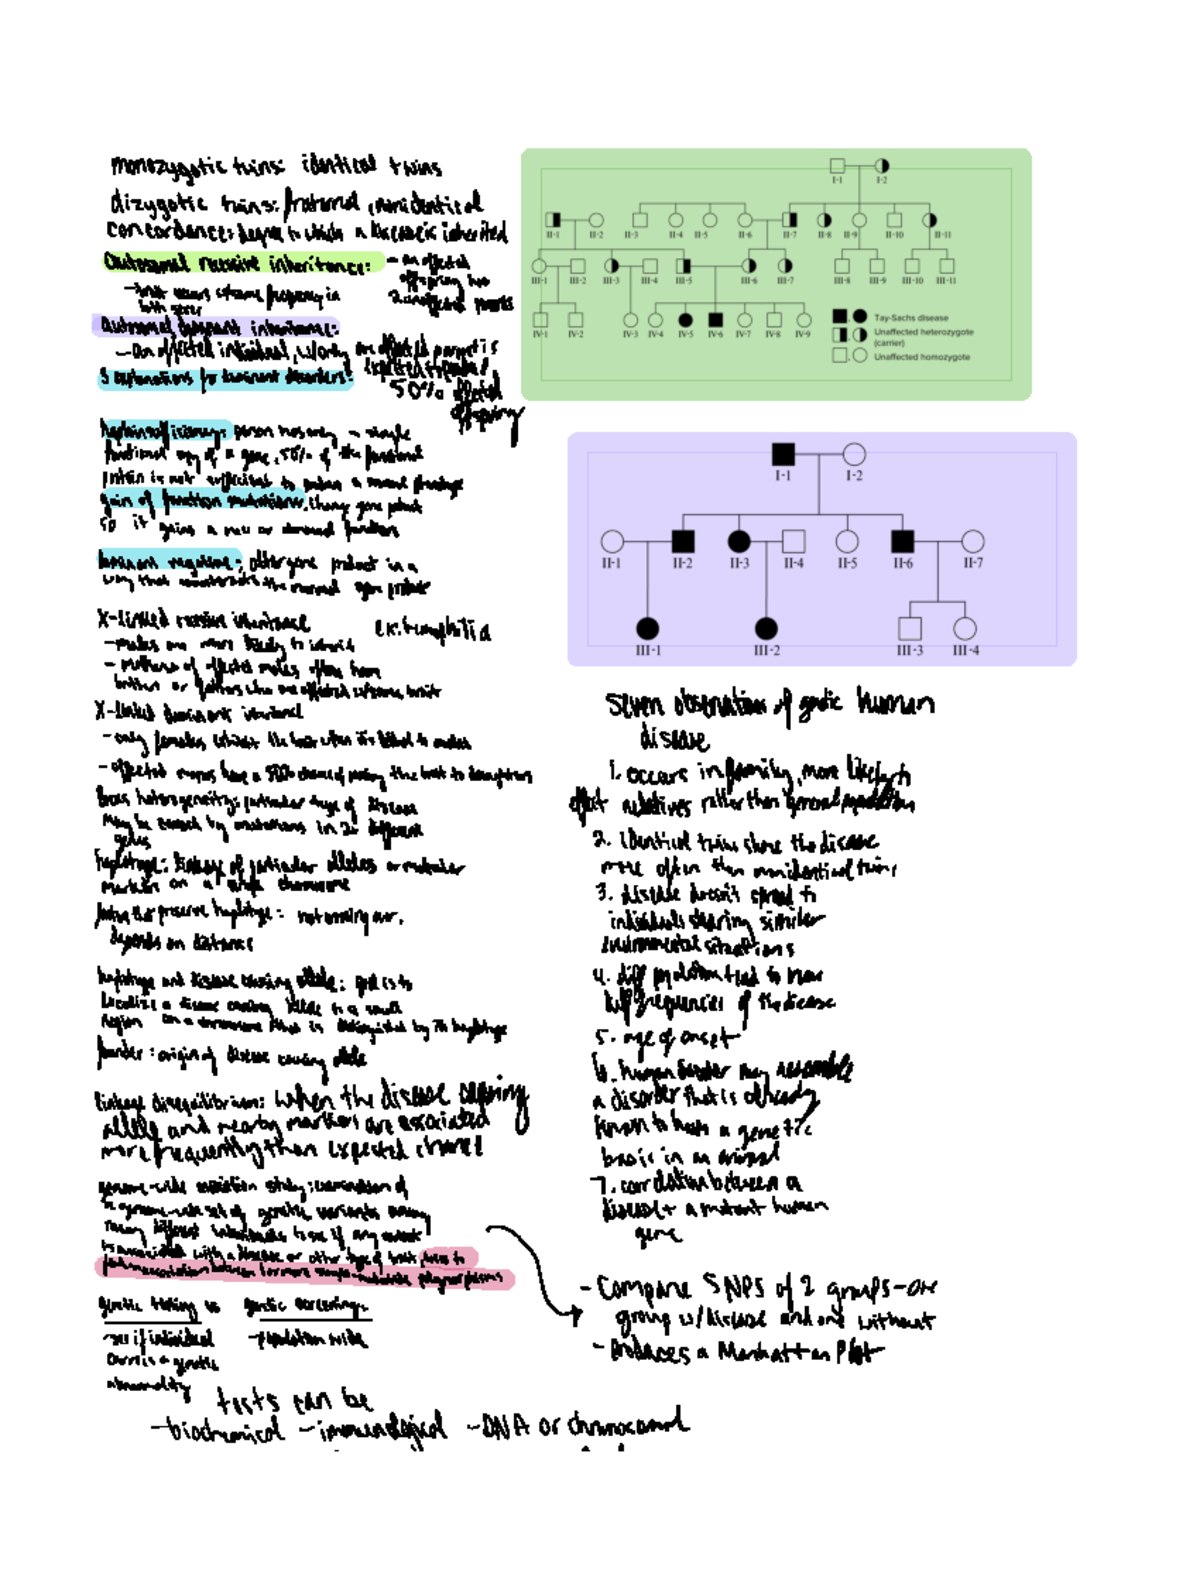 monozygotic twins: identical twins
dizygotic twins: fraternal, nonidentical
concordance: degree to which a disease is inherited
Autosomal recessive inheritance:
- an affected
offspring has
2 unaffected parents
- trait occurs w/same frequency in
both sexes
Autosomal dominant inheritance:
- An affected individual, w/only one affected parent is
expected to produce
50% affected
offspring
3 explanations for dominant disorders:
haploinsufficiency: person has only a single
functional copy of a gene, 50% of the functional
protein is not sufficient to produce a normal phenotype
gain of function mutations: change gene product
so it gains a new or abnormal function
dominant negative: alters gene product in a
way that counteracts the normal gene product
X-linked recessive inheritance
ex: hemophilia
- males are more likely to inherit
- mothers of affected males often have
brothers or fathers who are affected w/same trait
X-linked dominant inheritance
- only females exhibit the trait when it's lethal to males
- affected moms have a 50% chance of passing the trait to daughters
locus heterogeneity: particular type of disease
may be caused by mutations in 2+ different
genes
haplotype: linkage of particular alleles or molecular
markers on a single chromosome
haplotype: not crossing over,
depends on distance
haplotype and disease causing allele: goal is to
localize a disease causing allele to a small
region on a chromosome that is distinguished by its haplotype
founder: origin of disease causing allele
linkage disequilibrium: when the disease causing
allele and nearby markers are associated
more frequently than expected chance
genome-wide association study: examination of
a genome-wide set of genetic variants among
many different individuals to see if any variant
is associated with a disease or other type of trait, tries to
find association between 1 or more single-nucleotide polymorphisms
genetic testing vs genetic screening
- see if individual
carries a genetic
abnormality
- population wide
tests can be
- biochemical - immunological - DNA or chromosomal
I-1 I-2
II-1 II-2 II-3 II-4 II-5 II-6 II-7 II-8 II-9 II-10 II-11
III-1 III-2 III-3 III-4 III-5 III-6 III-7 III-8 III-9 III-10 III-11
IV-1 IV-2 IV-3 IV-4 IV-5 IV-6 IV-7 IV-8 IV-9
Tay-Sachs disease
Unaffected heterozygote
(carrier)
Unaffected homozygote
I-1 I-2
II-1 II-2 II-3 II-4 II-5 II-6 II-7
III-1 III-2 III-3 III-4
seven observations of genetic human
disease
1. occurs in family, more likely to
effect relatives rather than general population
2. identical twins share the disease
more often than nonidentical twins
3. disease doesn't spread to
individuals sharing similar
environmental situations
4. diff populations tend to have
diff frequencies of the disease
5. age of onset
6. human disorder may resemble
a disorder that is already
known to have a genetic
basis in an animal
7. correlation between a
disease + a mutant human
gene
- Compare SNPs of 2 groups - one
group w/disease and one without
- Produces a Manhattan Plot